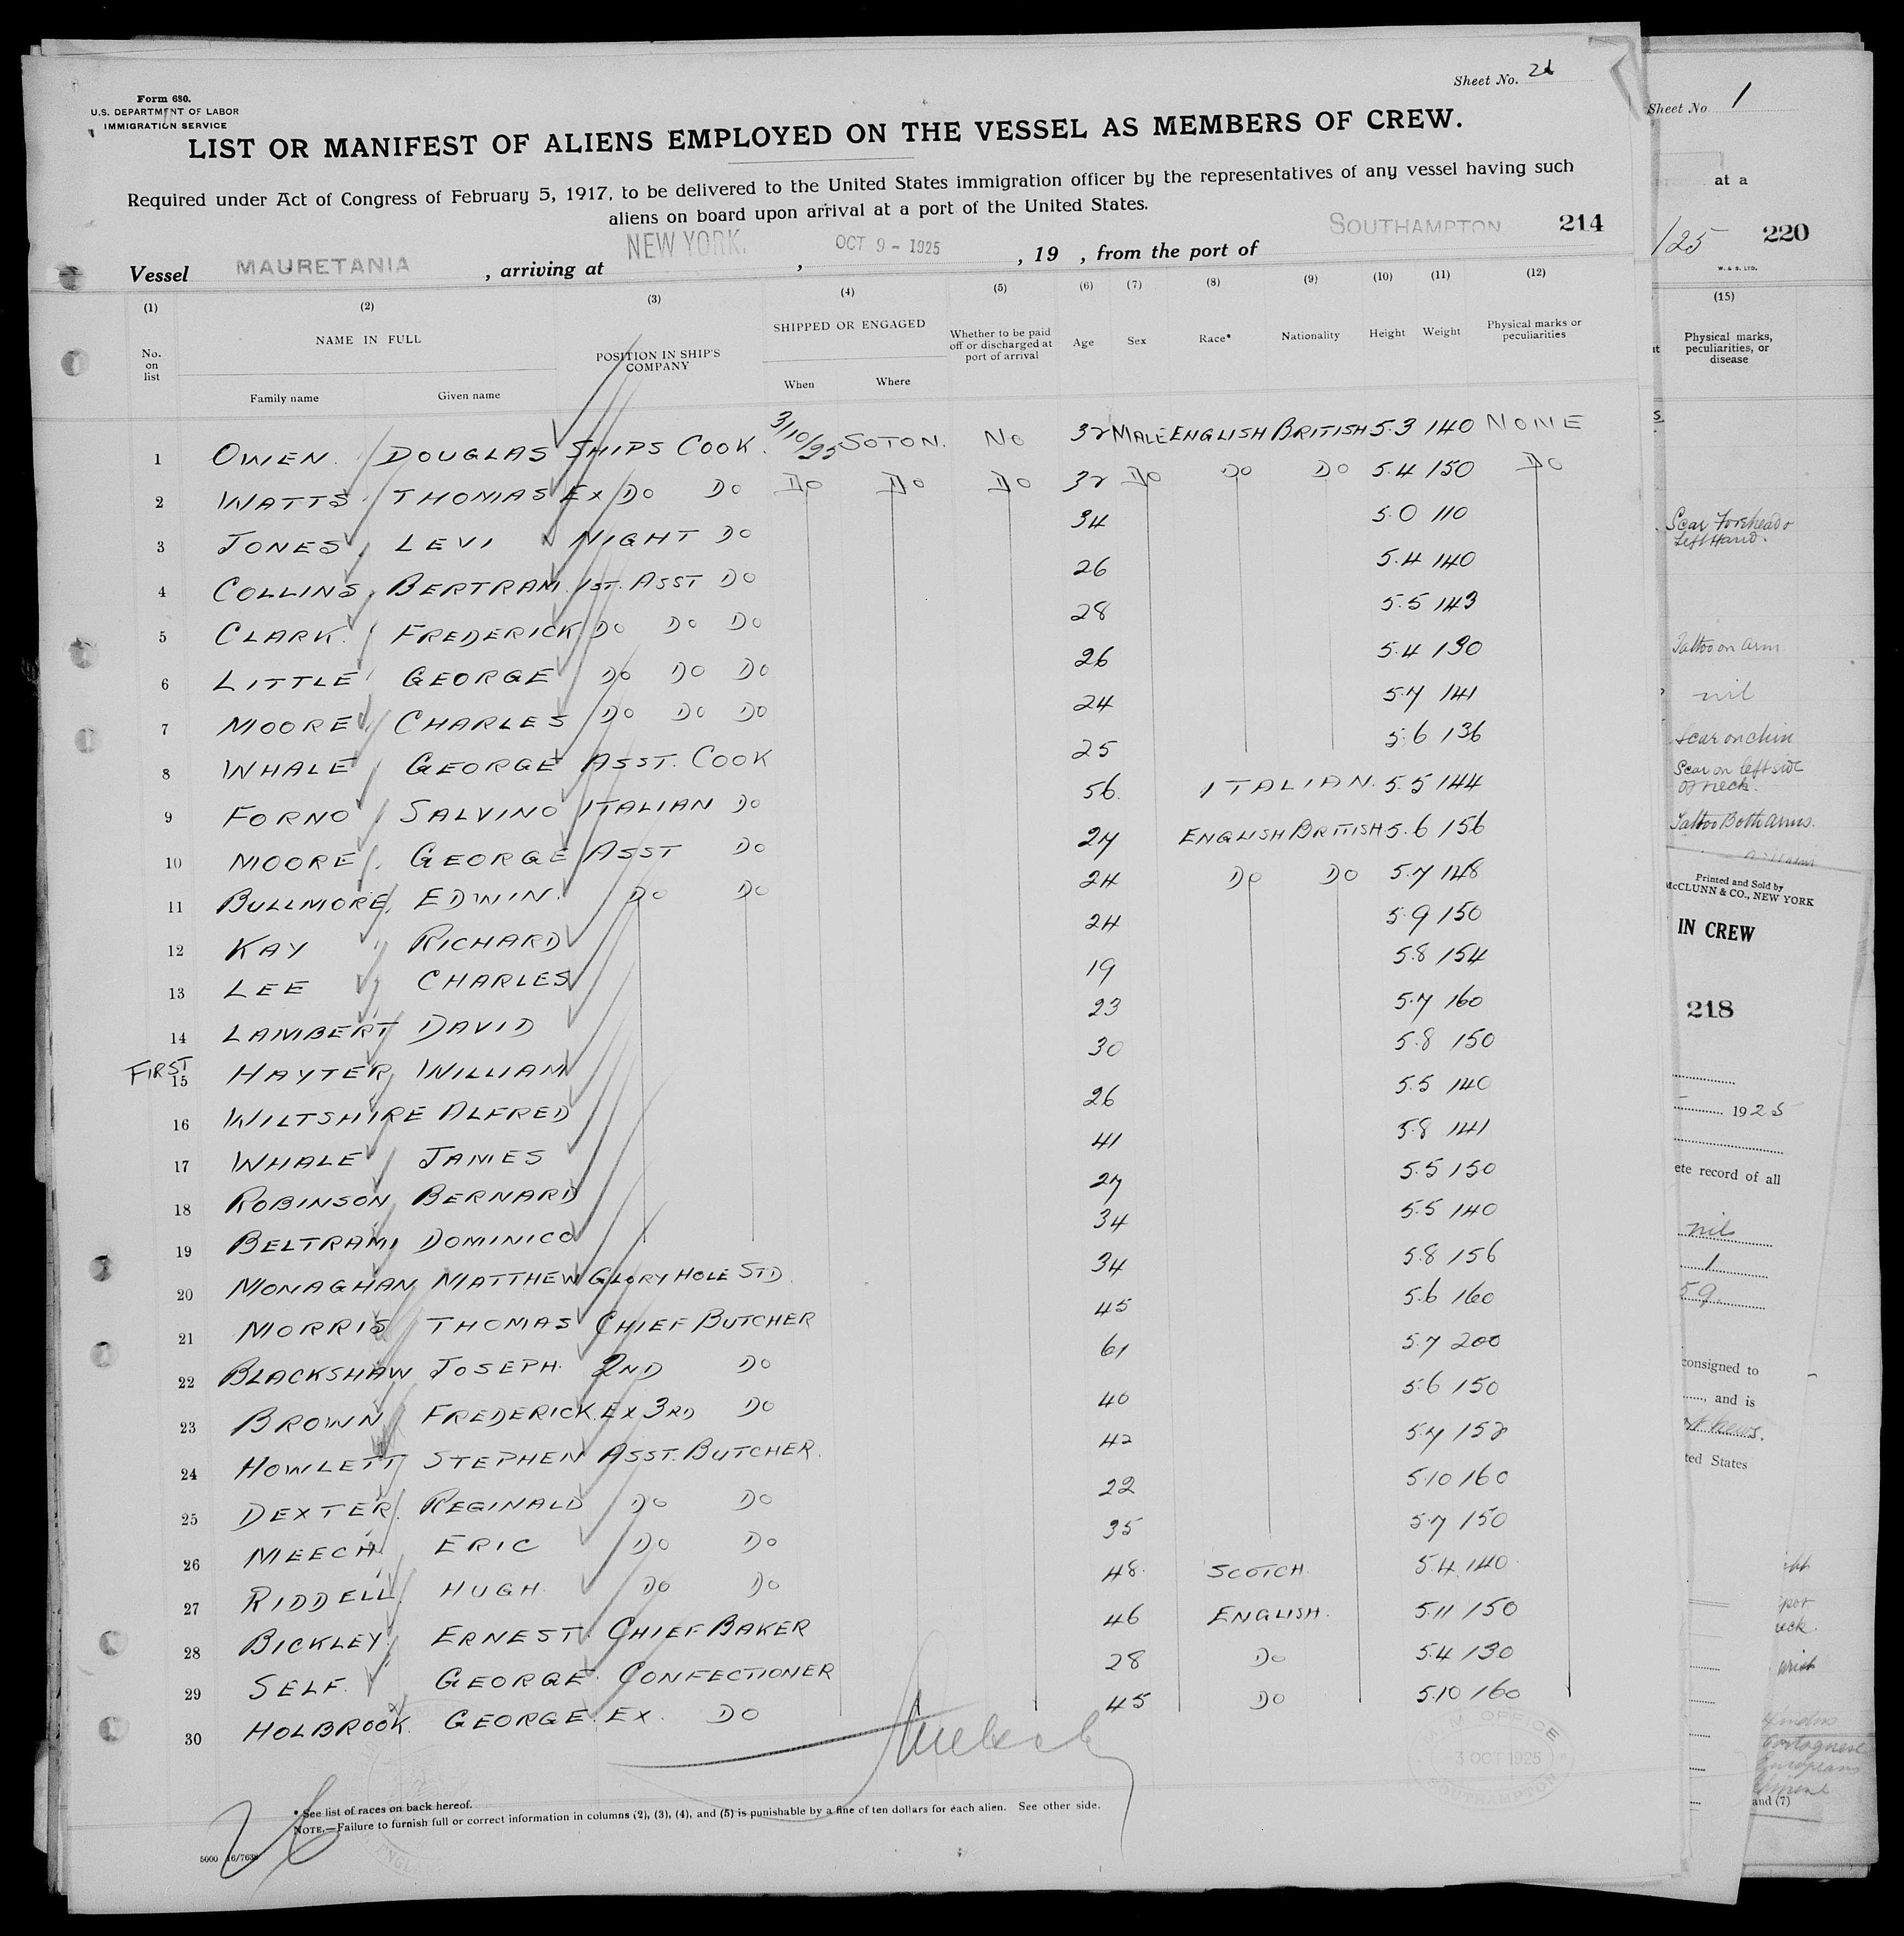 Form 680.
U.S. DEPARTMENT OF LABOR
IMMIGRATION SERVICE
Sheet No.
LIST OR MANIFEST OF ALIENS EMPLOYED ON THE VESSEL AS MEMBERS OF CREW.
Required under Act of Congress of February 5, 1917, to be delivered to the United States immigration officer by the representatives of any vessel having such
aliens on board upon arrival at a port of the United States.
Vessel MAURETANIA, arriving at NEW YORK, OCT 9 - 1925, 19 , from the port of SOUTHAMPTON 214
(1) (2) (3) (4) (5) (6) (7) (8) (9) (10) (11) (12)
No. on list NAME IN FULL POSITION IN SHIP'S COMPANY SHIPPED OR ENGAGED Whether to be paid off or discharged at port of arrival Age Sex Race* Nationality Height Weight Physical marks or peculiarities
Family name Given name When Where
1 OWEN. DOUGLAS SHIPS COOK. 3/10/25 SOTON. NO 32 MALE ENGLISH BRITISH 5.3 140 NONE
2 WATTS THOMAS EX DO DO DO DO DO 32 DO DO DO 5.4 150 DO
3 JONES LEVI NIGHT DO 34 5.0 110
4 COLLINS BERTRAM 1ST. ASST DO 26 5.4 140
5 CLARK. FREDERICK DO DO DO 28 5.5 143
6 LITTLE GEORGE DO DO DO 26 5.4 130
7 MOORE CHARLES DO DO DO 24 5.7 141
8 WHALE GEORGE ASST. COOK 25 5.6 136
9 FORNO SALVINO ITALIAN DO 56. ITALIAN. 5.5 144
10 MOORE GEORGE ASST DO 27 ENGLISH BRITISH 5.6 156
11 BULLMORE EDWIN. DO DO 24 DO DO 5.7 148
12 KAY RICHARD 24 5.9 150
13 LEE CHARLES 19 5.8 154
14 LAMBERT DAVID 23 5.7 160
FIRST
15 HAYTER WILLIAM 30 5.8 150
16 WILTSHIRE ALFRED 26 5.5 140
17 WHALE JAMES 41 5.8 141
18 ROBINSON BERNARD 27 5.5 150
19 BELTRAMI DOMINICO 34 5.5 140
20 MONAGHAN MATTHEW GLORY HOLE STD. 34 5.8 156
21 MORRIS THOMAS CHIEF BUTCHER 45 5.6 160
22 BLACKSHAW JOSEPH. 2ND DO 61 5.7 200
23 BROWN FREDERICK. EX 3RD DO 40 5.6 150
24 HOWLETT STEPHEN ASST. BUTCHER. 42 5.7 152
25 DEXTER REGINALD DO DO 22 5.10 160
26 MEECH ERIC DO DO 35 5.7 150
27 RIDDELL HUGH. DO DO 48. SCOTCH. 5.4 140
28 BICKLEY ERNEST. CHIEF BAKER 46 ENGLISH. 5.11 150
29 SELF. GEORGE. CONFECTIONER 28 DO 5.4 130
30 HOLBROOK. GEORGE. EX. DO 45 DO 5.10 160
M. OFFICE
3 OCT 1925
SOUTHAMPTON
26
* See list of races on back hereof.
NOTE.—Failure to furnish full or correct information in columns (2), (3), (4), and (5) is punishable by a fine of ten dollars for each alien. See other side.
5000
Sheet No 1
at a
/25 220
W. & S. LTD.
(15)
Physical marks,
peculiarities, or
disease
Scar Forehead &
Left Hand.
Tattoo on arm
nil
Scar on chin
Scar on left side
of neck.
Tattoo Both arms.
Printed and Sold by
McCLUNN & CO., NEW YORK
IN CREW
218
1925
ete record of all
nil
1
59
consigned to
, and is
ted States
Portuguese
European
and (7)